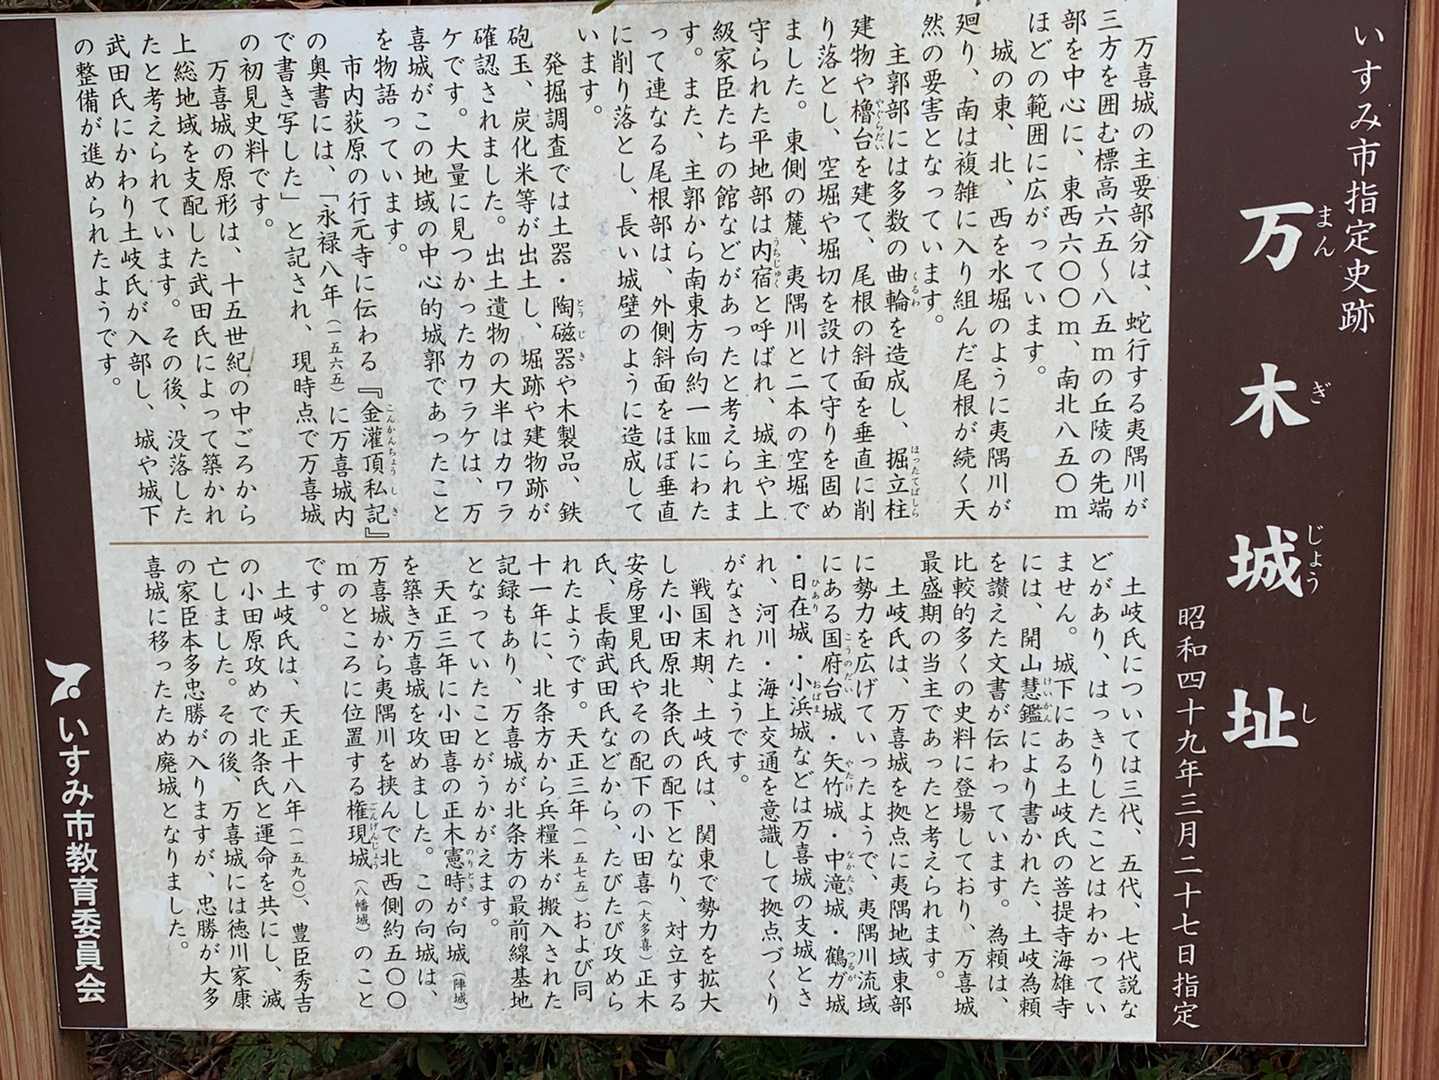 いすみ市指定史跡
万木城址
まん ぎ じょう し
昭和四十九年三月二十七日指定
万喜城の主要部分は、蛇行する夷隅川が
三方を囲む標高六五～八五mの丘陵の先端
部を中心に、東西六〇〇m、南北八五〇m
ほどの範囲に広がっています。
城の東、北、西を水堀のように夷隅川が
廻り、南は複雑に入り組んだ尾根が続く天
然の要害となっています。
主郭部には多数の曲輪を造成し、掘立柱
くるわ ほったてばしら
建物や櫓台を建て、尾根の斜面を垂直に削
やぐらだい
り落とし、空堀や堀切を設けて守りを固め
ました。東側の麓、夷隅川と二本の空堀で
守られた平地部は内宿と呼ばれ、城主や上
うちじゅく
級家臣たちの館などがあったと考えられま
す。また、主郭から南東方向約一㎞にわた
って連なる尾根部は、外側斜面をほぼ垂直
に削り落とし、長い城壁のように造成して
います。
発掘調査では土器・陶磁器や木製品、鉄
とうじき
砲玉、炭化米等が出土し、堀跡や建物跡が
確認されました。出土遺物の大半はカワラ
ケです。大量に見つかったカワラケは、万
喜城がこの地域の中心的城郭であったこと
を物語っています。
市内荻原の行元寺に伝わる『金灌頂私記』
こんかんちょうしき
の奥書には、「永禄八年（一五六五）に万喜城内
で書き写した」と記され、現時点で万喜城
の初見史料です。
万喜城の原形は、十五世紀の中ごろから
上総地域を支配した武田氏によって築かれ
たと考えられています。その後、没落した
武田氏にかわり土岐氏が入部し、城や城下
の整備が進められたようです。
土岐氏については三代、五代、七代説な
どがあり、はっきりしたことはわかってい
ません。城下にある土岐氏の菩提寺海雄寺
には、開山慧鑑により書かれた、土岐為頼
けいかん
を讃えた文書が伝わっています。為頼は、
比較的多くの史料に登場しており、万喜城
最盛期の当主であったと考えられます。
土岐氏は、万喜城を拠点に夷隅地域東部
に勢力を広げていったようで、夷隅川流域
にある国府台城・矢竹城・中滝城・鶴ガ城
こうのだい やたけ なかたき つるが
・日在城・小浜城などは万喜城の支城とさ
ひあり おばま
れ、河川・海上交通を意識して拠点づくり
がなされたようです。
戦国末期、土岐氏は、関東で勢力を拡大
した小田原北条氏の配下となり、対立する
安房里見氏やその配下の小田喜（大多喜）正木
氏、長南武田氏などから、たびたび攻めら
れたようです。天正三年（一五七五）および同
十一年に、北条方から兵糧米が搬入された
記録もあり、万喜城が北条方の最前線基地
となっていたことがうかがえます。
天正三年に小田喜の正木憲時が向城（陣城）
のりとき
を築き万喜城を攻めました。この向城は、
万喜城から夷隅川を挟んで北西側約五〇〇
mのところに位置する権現城（八幡城）のこと
ごんげんじょう
です。
土岐氏は、天正十八年（一五九〇）、豊臣秀吉
の小田原攻めで北条氏と運命を共にし、滅
亡しました。その後、万喜城には徳川家康
の家臣本多忠勝が入りますが、忠勝が大多
喜城に移ったため廃城となりました。
いすみ市教育委員会